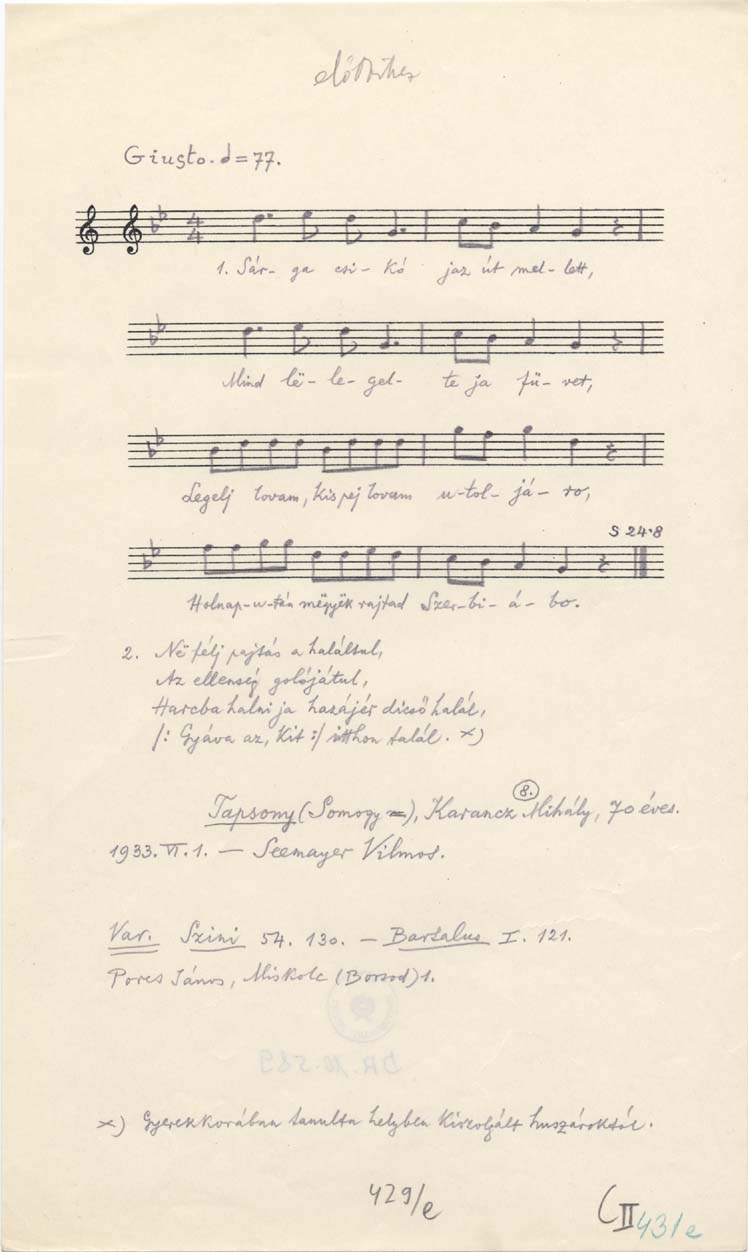 Giusto. ♩=77.
1. Sár- ga csi- kó jaz út mel- lett,
Mind lë- le- gel- te ja fü- vet,
Legelj lovam, kis pej lovam u-tol- já- ro,
S 24·8
Holnap-u-tán mëgyëk rajtad Szer-bi- á- bo.
2. Në félj pajtás a haláltul,
Az ellenség golójátul,
Harcba halni ja hazájér dicső halál,
/: Gyáva az, kit :/ itthon talál. ×)
8.
Tapsony (Somogy), Karancz Mihály, 70 éves.
1933. VI. 1. — Seemayer Vilmos.
Var. Szini 54. 130. — Bartalus I. 121.
Porcs János, Miskolc (Borsod) 1.
×) Gyerekkorában tanulta helyben kiszolgált huszároktól.
429/e
C II 431e